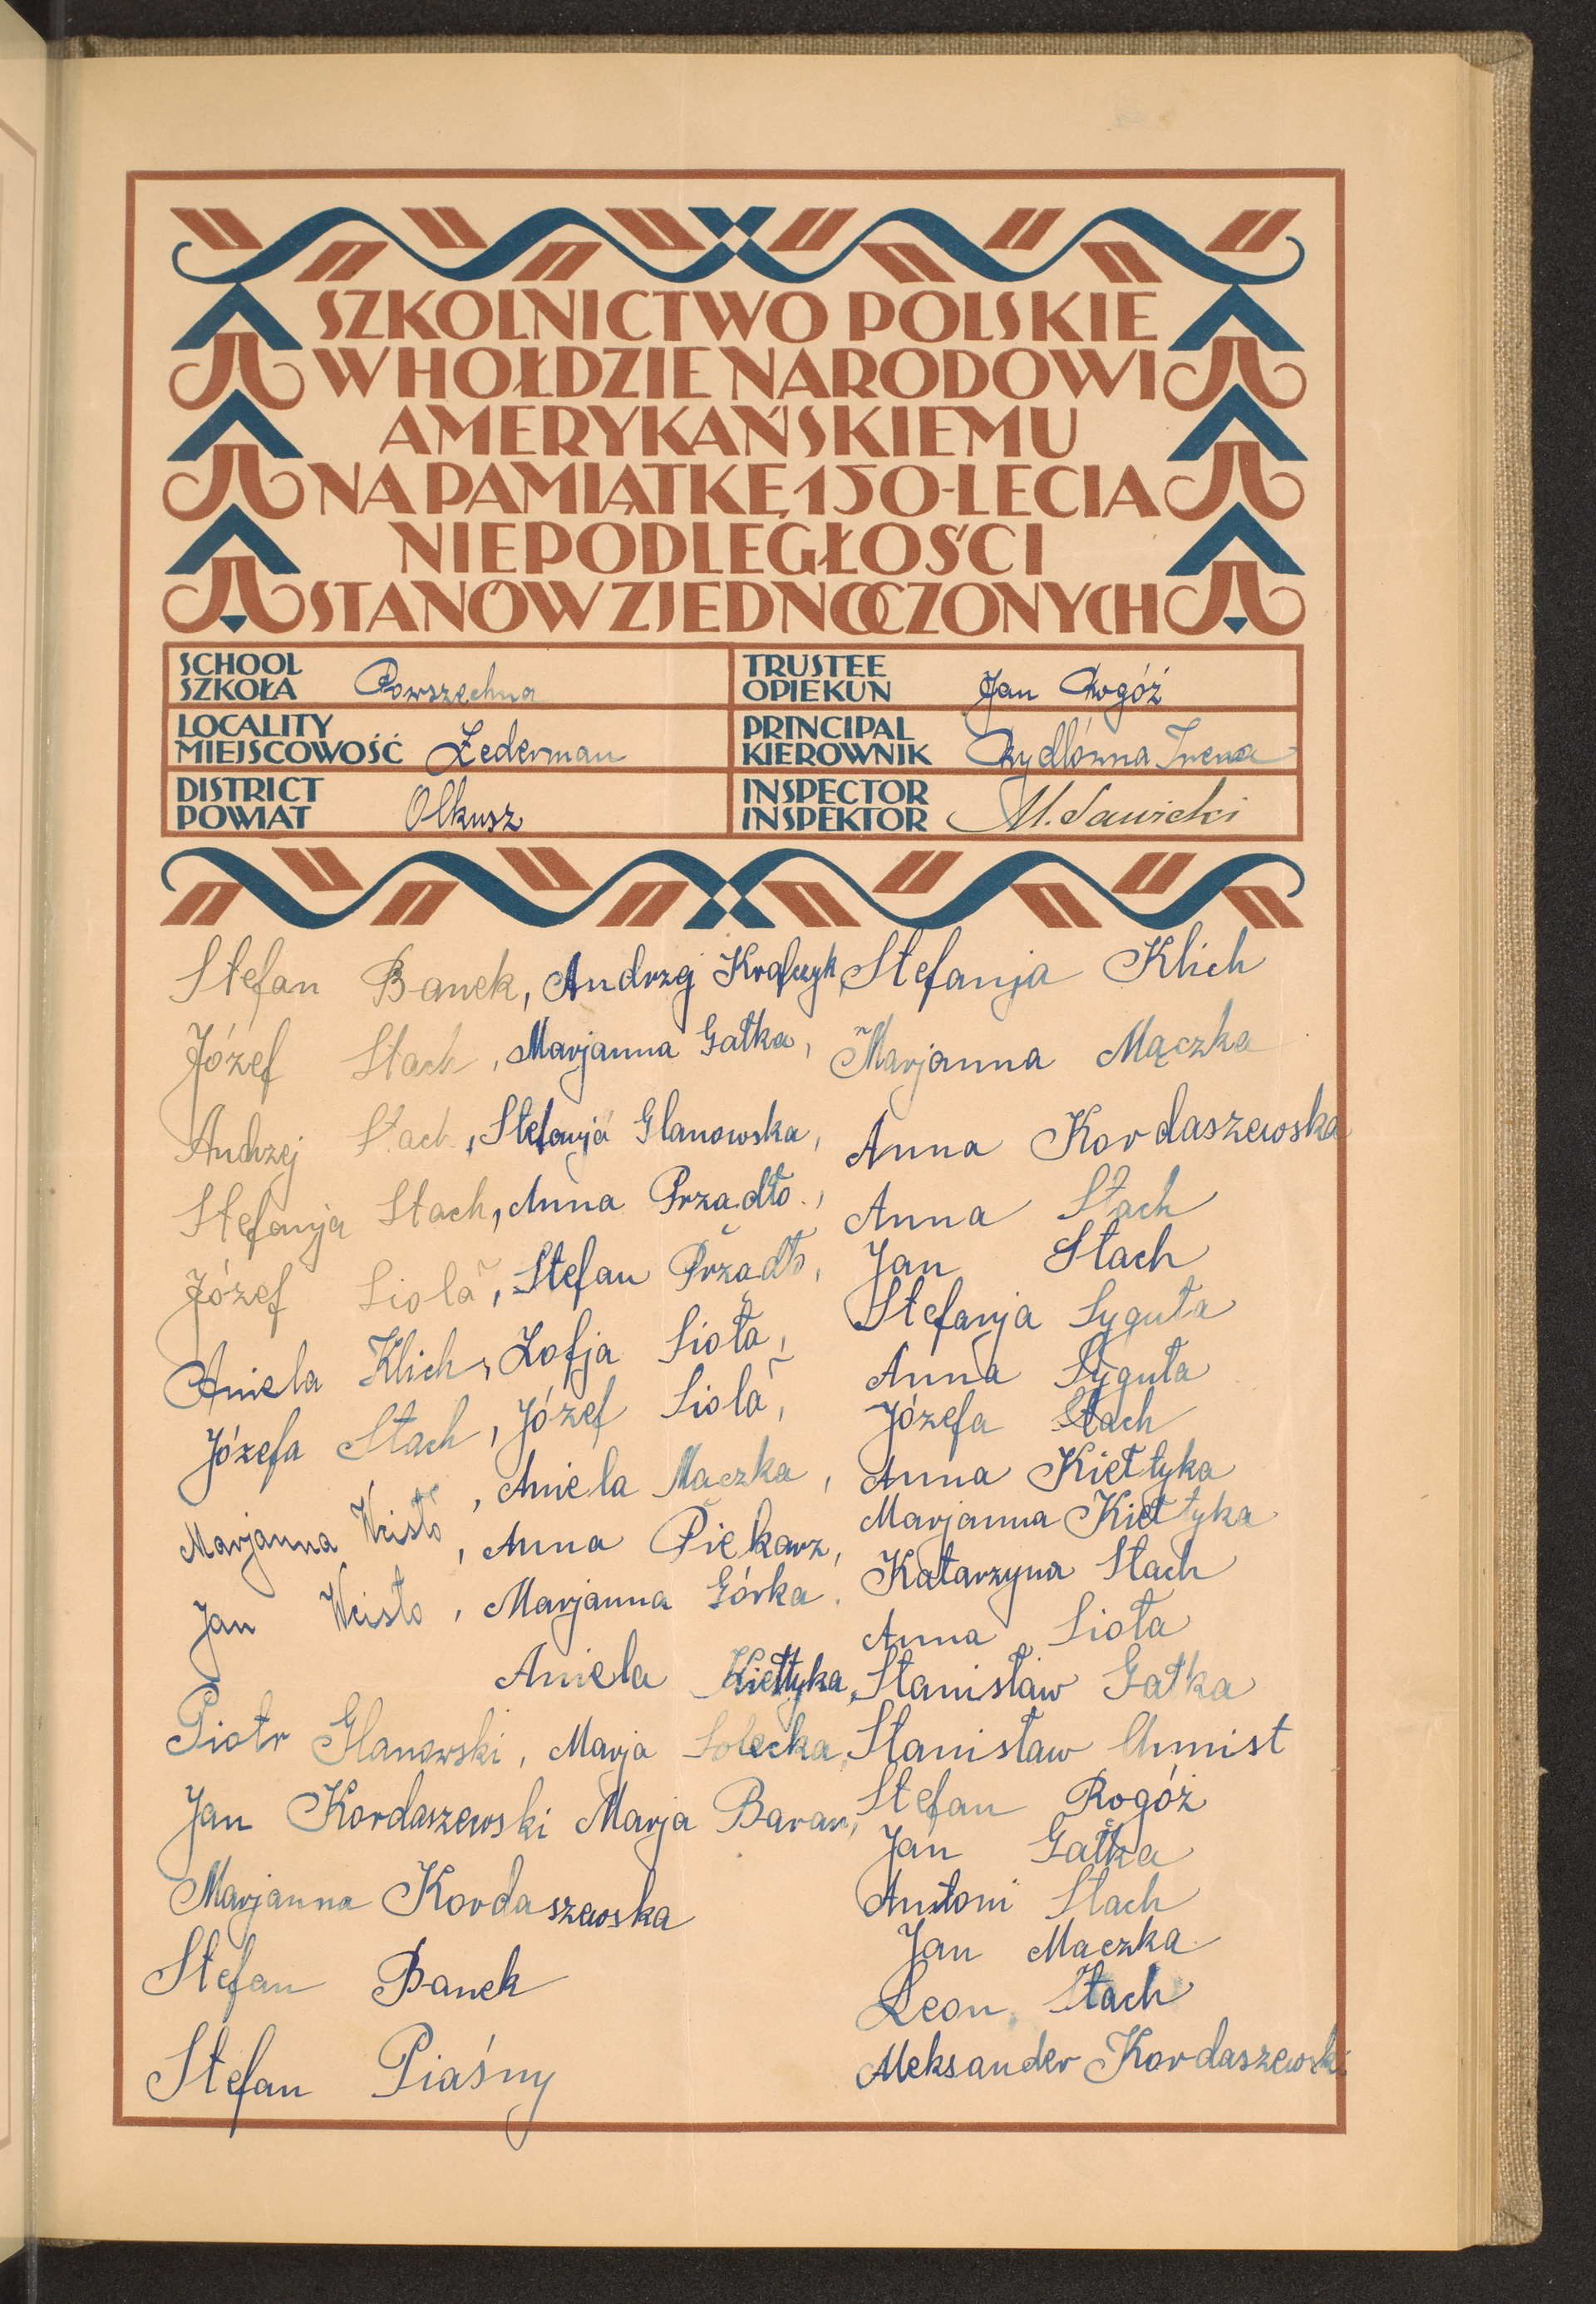 SZKOLNICTWO POLSKIE
W HOŁDZIE NARODOWI
AMERYKAŃSKIEMU
NA PAMIĄTKĘ 150-LECIA
NIEPODLEGŁOŚCI
STANÓW ZJEDNOCZONYCH
SCHOOL
SZKOŁA Powszechna
TRUSTEE
OPIEKUN Jan Rogóż
LOCALITY
MIEJSCOWOŚĆ Żederman
PRINCIPAL
KIEROWNIK Rydlówna Irena
DISTRICT
POWIAT Olkusz
INSPECTOR
INSPEKTOR M. Sawicki
Stefan Banek, Andrzej Krafczyk, Stefanja Klich
Józef Stach, Marjanna Gałka, Marjanna Mączka
Andrzej Stach, Stefanja Glanowska, Anna Kordaszewska
Stefanja Stach, Anna Prządło, Anna Stach
Józef Sioła, Stefan Prządło, Jan Stach
Stefanja Syguła
Aniela Klich, Zofja Sioła, Anna Syguła
Józefa Stach, Józef Sioła, Józefa Stach
Marjanna Wcisło, Aniela Mączka, Anna Kiełtyka
Anna Piekarz, Marjanna Kiełtyka
Jan Wcisło, Marjanna Górka, Katarzyna Stach
Anna Sioła
Aniela Kiełtyka, Stanisław Gałka
Piotr Glanowski, Marja Solecka, Stanisław Chmist
Jan Kordaszewski Marja Baran, Stefan Rogóż
Jan Gałka
Marjanna Kordaszewska Antoni Stach
Jan Maczka
Stefan Banek Leon Stach
Stefan Piaśny Aleksander Kordaszewski